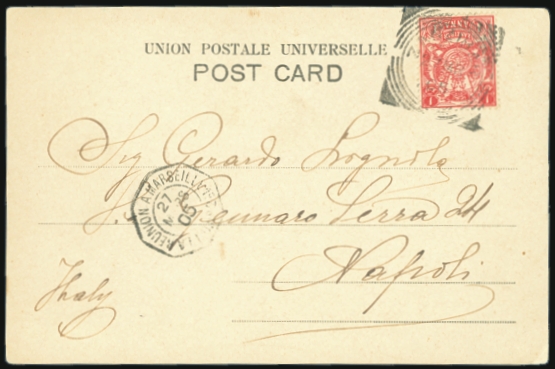 UNION POSTALE UNIVERSELLE
POST CARD
Sig Gerardo
REUNION A MARSEILLE
27
05
Gennaro Serra 24
Napoli
Italy
1 1